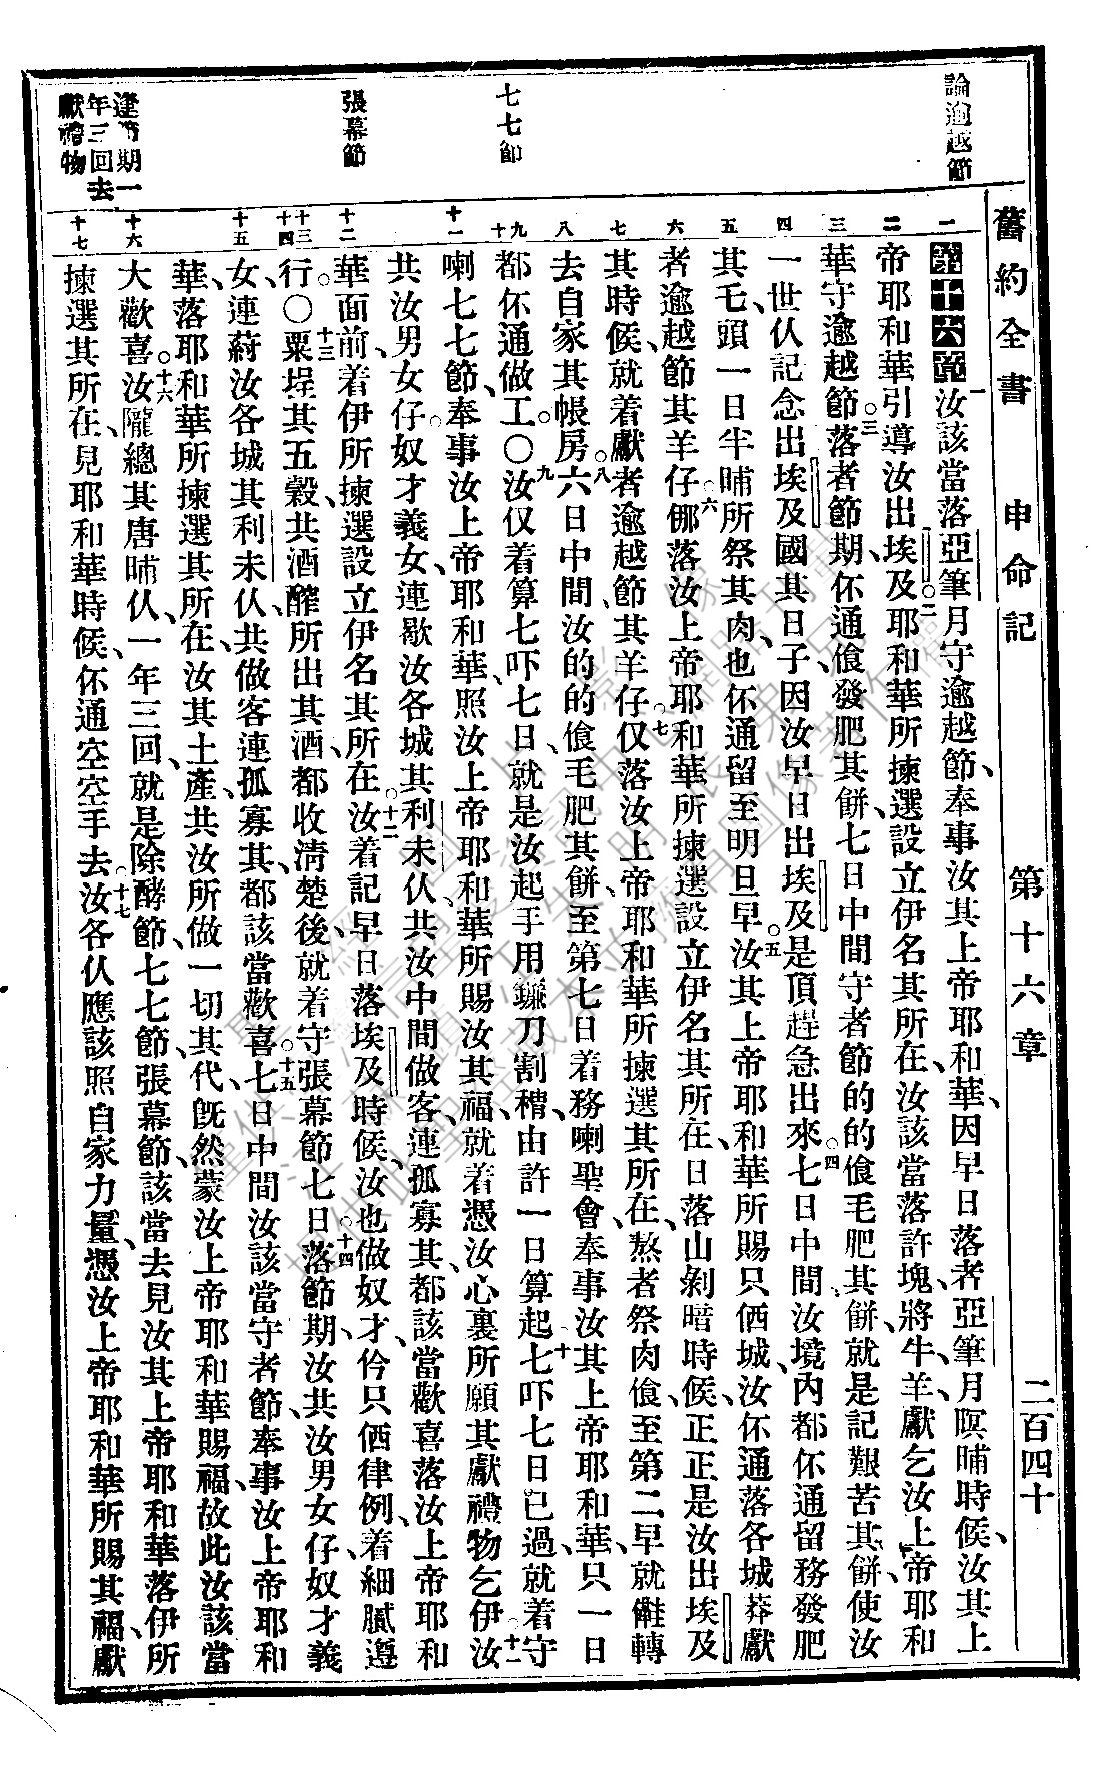 舊約全書 申命記 第十六章 二百四十
論逾越節
七七節
張幕節
逢節期一
年三回去
獻禮物
一 二 三 四 五 六 七 八 九 十 十一 十二 十三 十四 十五 十六 十七
第十六章 一汝該當落亞筆月守逾越節、奉事汝其上帝耶和華、因早日落者亞筆月暝晡時候、汝其上
帝耶和華引導汝出埃及。二耶和華所揀選設立伊名其所在、汝該當落許塊、將牛、羊、獻乞汝上帝耶和
華守逾越節。三落者節期、伓通飡發肥其餅、七日中間守者節的的飡毛肥其餅、就是記艱苦其餅、使汝
一世仈記念出埃及國其日子、因汝早日出埃及、是頂趕急出來。四七日中間、汝境內都伓通留務發肥
其乇、頭一日半晡所祭其肉、也伓通留至明旦早。五汝其上帝耶和華所賜只㑚城、汝伓通落各城莽獻
者逾越節其羊仔。六㑚落汝上帝耶和華所揀選設立伊名其所在、日落山剁暗時候、正正是汝出埃及
其時候、就着獻者逾越節其羊仔。七仅落汝上帝耶和華所揀選其所在、熬者祭肉飡、至第二早就㒕轉
去自家其帳房。八六日中間汝的的飡毛肥其餅、至第七日着務喇聖會、奉事汝其上帝耶和華、只一日
都伓通做工。〇九汝仅着算七吓七日、就是汝起手用鐮刀割䆀、由許一日算起、七吓七日已過、十就着守
喇七七節、奉事汝上帝耶和華、照汝上帝耶和華所賜汝其福、就着憑汝心裏所願其獻禮物乞伊。十一汝
共汝男女仔、奴才、義女、連歇汝各城其利未仈、共汝中間做客、連孤寡其、都該當歡喜落汝上帝耶和
華面前、着伊所揀選設立伊名其所在。十二汝着記早日落埃及時候、汝也做奴才、仱只㑚律例、着細膩遵
行。〇十三粟埕其五穀、共酒醡所出其酒、都收淸楚後、就着守張幕節七日。十四落節期、汝共汝男女仔、奴才、義
女、連蒪汝各城其利未仈、共做客、連孤寡其、都該當歡喜。十五七日中間、汝該當守者節、奉事汝上帝耶和
華、落耶和華所揀選其所在、汝其土產、共汝所做一切其代、旣然蒙汝上帝耶和華賜福、故此汝該當
大歡喜。十六汝隴總其唐晡仈、一年三回、就是除酵節、七七節、張幕節、該當去見汝其上帝耶和華、落伊所
揀選其所在、見耶和華時候、伓通空空手去。十七汝各仈應該照自家力量、憑汝上帝耶和華所賜其福、獻